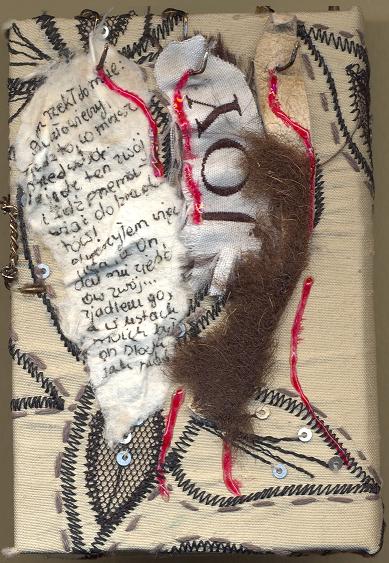 rzekł do mnie:
człowieczy,
zjedz to, co masz
przed sobą.
Zjedz ten zwój
i idź przema-
wiaj do Izraeli-
tów!
otworzyłem więc
usta, a On
dał mi zjeść
ów zwój...
zjadłem go,
a w ustach
moich był
on słodki
jak miód
JOY